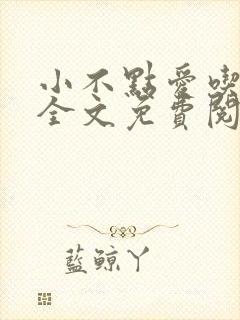 小不點愛喫
全文免費閱
藍鯨丫